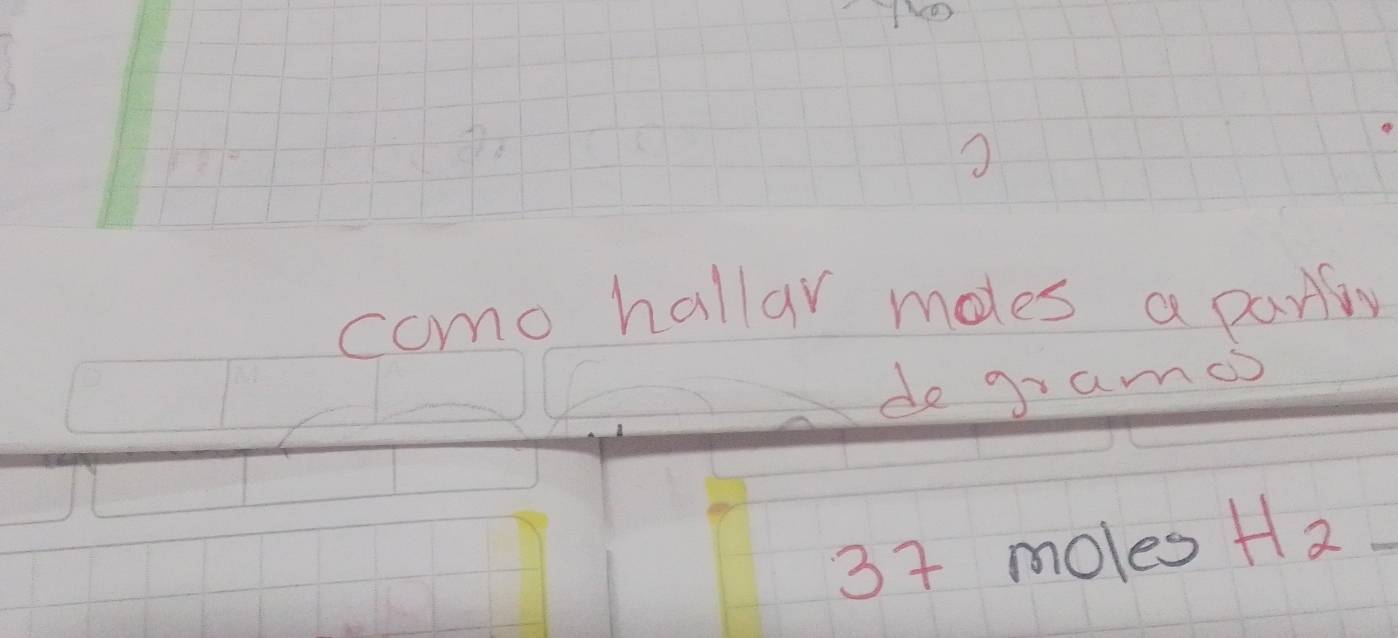 como hallar moles a partir
de gramos
37 moles H2